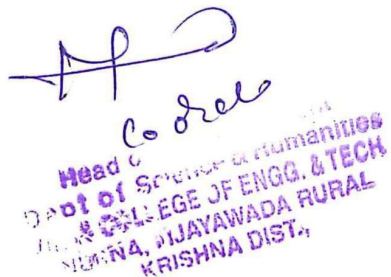 Head
Dept of Science & Humanities
COLLEGE OF ENGG. & TECH
NUNNA, VIJAYAWADA RURAL
KRISHNA DIST.,